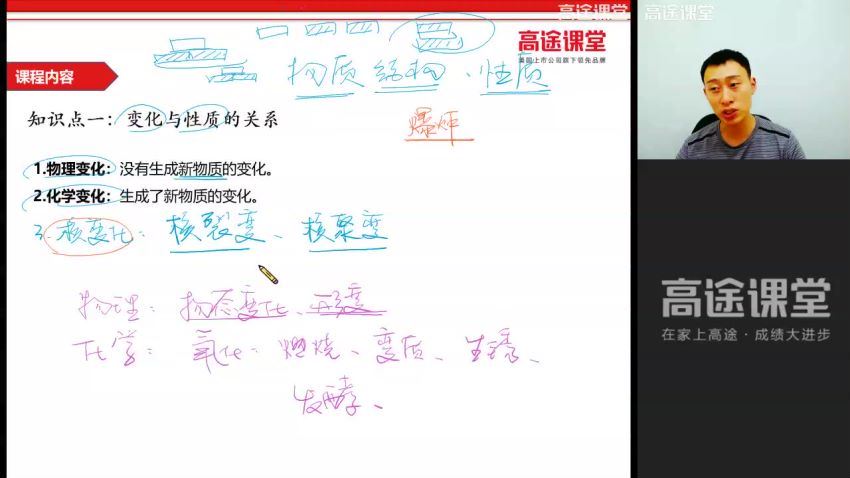 高途课堂
高途课堂
高途课堂
美国上市公司旗下领先品牌
物质 结构、性质
课程内容
知识点一：变化与性质的关系
爆炸
1.物理变化：没有生成新物质的变化。
2.化学变化：生成了新物质的变化。
3.核变化：核裂变、核聚变
物理：物态变化、形变
化学：氧化：燃烧、变质、生锈、
发酵、
高途课堂
在家上高途·成绩大进步